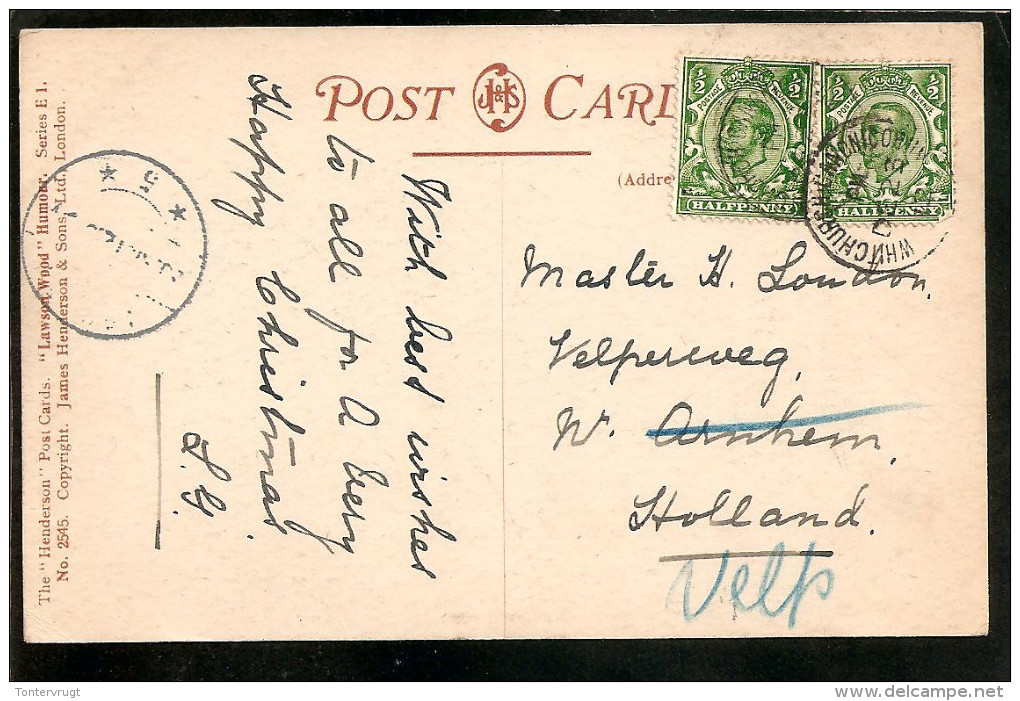 The "Henderson" Post Cards. "Lawson Wood" Humour. Series E 1.
No. 2545. Copyright. James Henderson & Sons, Ltd, London.
POST CARD
JH&S
(Addre
½ ½
POSTAGE REVENUE
HALFPENNY
½ ½
POSTAGE REVENUE
HALFPENNY
WHITCHURCH
5
With best wishes
to all for a very
Happy Christmas.
Master H. London,
Velperweg,
Nr. Arnhem,
Holland.
Velp
Tontervrugt
http://www.delcampe.net